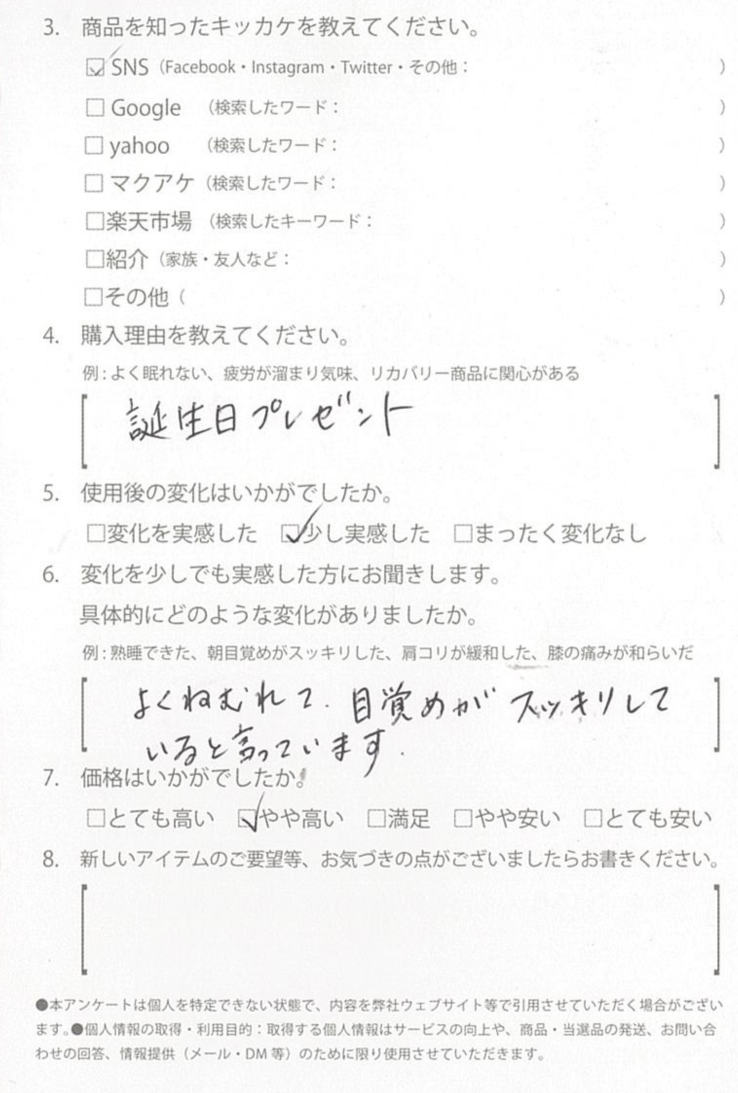 3. 商品を知ったキッカケを教えてください。
☑ SNS（Facebook・Instagram・Twitter・その他：　）
□ Google （検索したワード：　）
□ yahoo （検索したワード：　）
□ マクアケ（検索したワード：　）
□楽天市場 （検索したキーワード：　）
□紹介（家族・友人など：　）
□その他（　）
4. 購入理由を教えてください。
例：よく眠れない、疲労が溜まり気味、リカバリー商品に関心がある
誕生日プレゼント
5. 使用後の変化はいかがでしたか。
□変化を実感した ☑少し実感した □まったく変化なし
6. 変化を少しでも実感した方にお聞きします。
具体的にどのような変化がありましたか。
例：熟睡できた、朝目覚めがスッキリした、肩コリが緩和した、膝の痛みが和らいだ
よくねむれて、目覚めがスッキリして
いると言っています.
7. 価格はいかがでしたか。
□とても高い ☑やや高い □満足 □やや安い □とても安い
8. 新しいアイテムのご要望等、お気づきの点がございましたらお書きください。
●本アンケートは個人を特定できない状態で、内容を弊社ウェブサイト等で引用させていただく場合がござい
ます。●個人情報の取得・利用目的：取得する個人情報はサービスの向上や、商品・当選品の発送、お問い合
わせの回答、情報提供（メール・DM 等）のために限り使用させていただきます。